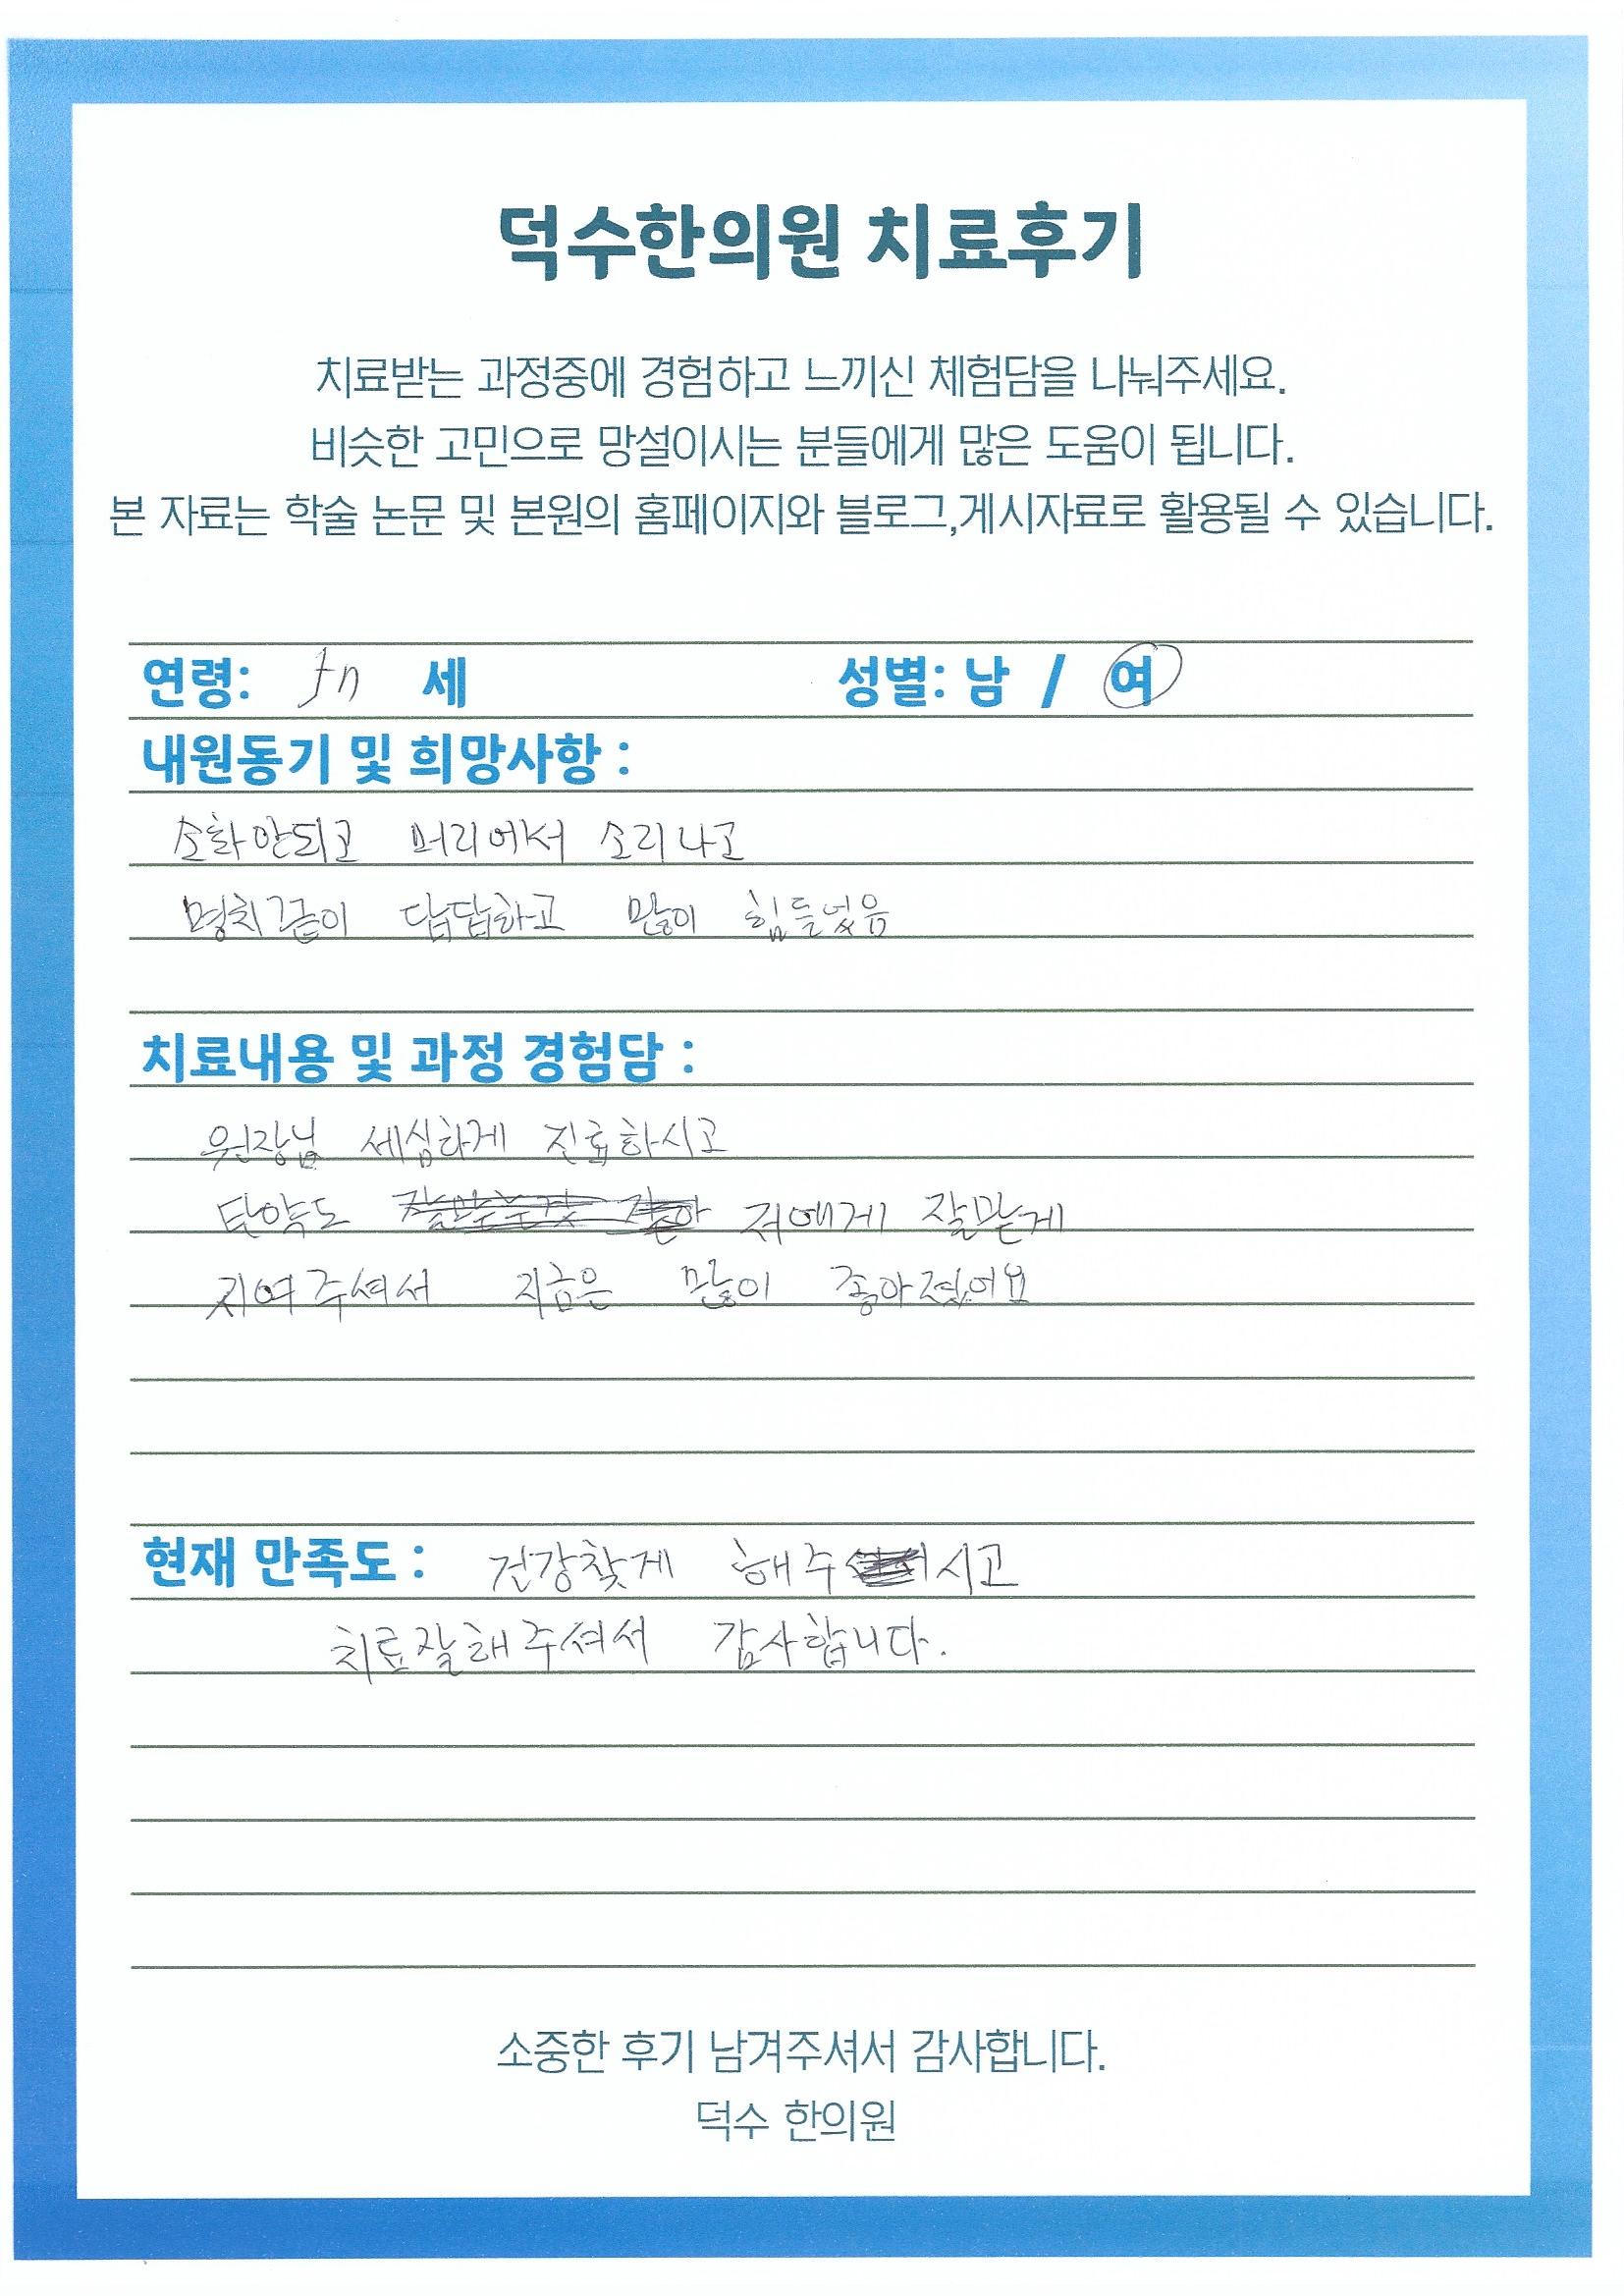 덕수한의원 치료후기
치료받는 과정중에 경험하고 느끼신 체험담을 나눠주세요.
비슷한 고민으로 망설이시는 분들에게 많은 도움이 됩니다.
본 자료는 학술 논문 및 본원의 홈페이지와 블로그,게시자료로 활용될 수 있습니다.
연령: 세 성별: 남 / 여
내원동기 및 희망사항 :
소화안되고 머리에서 소리나고
명치끝이 답답하고 많이 힘들었음
치료내용 및 과정 경험담 :
원장님 세심하게 진료하시고
탄약도 저에게 잘맞게
지여주셔서 지금은 많이 좋아졌어요
현재 만족도 : 건강찾게 해주시고
치료잘해주셔서 감사합니다.
소중한 후기 남겨주셔서 감사합니다.
덕수 한의원